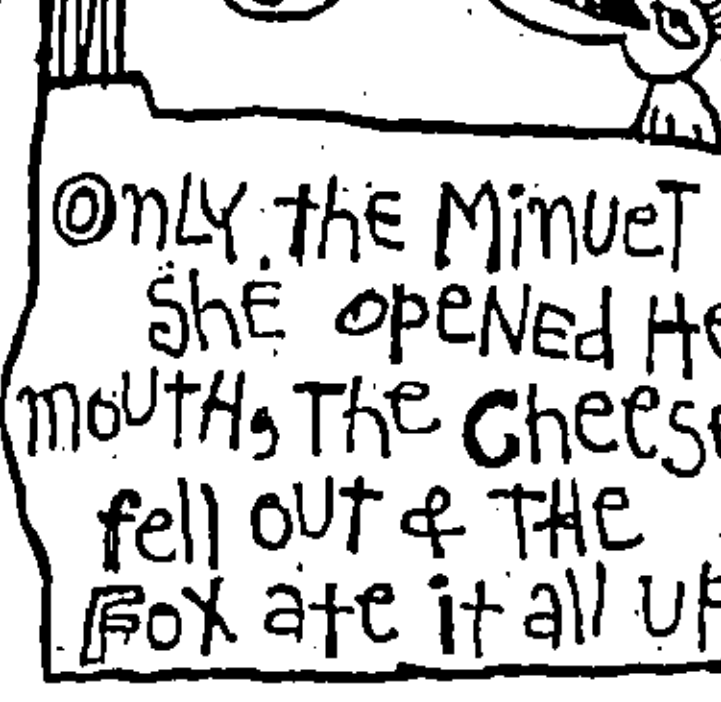 Only the MinUeT
She opENEd He
mouTH, The Cheese
fell OUT & THe
Fox ate it all UP